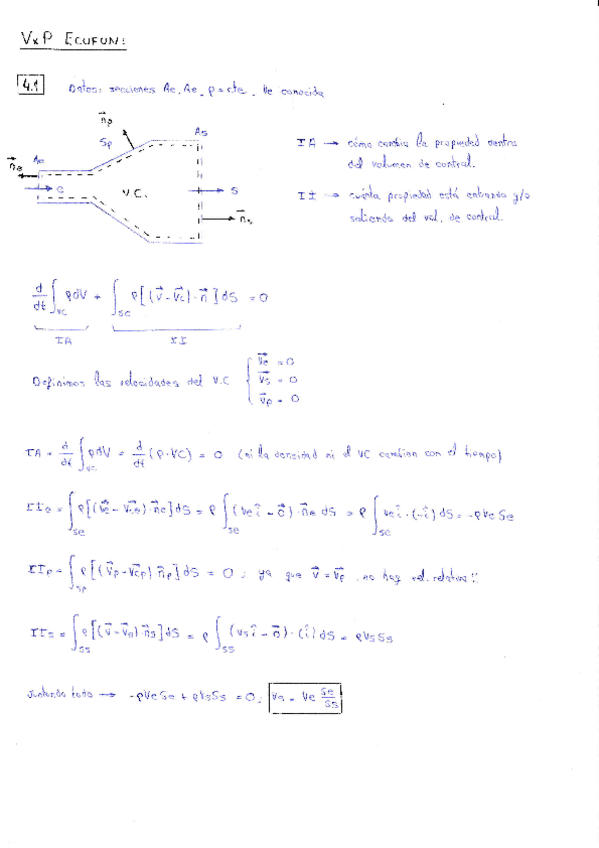 VxP ECUFUN:
4.1 Datos: secciones Ae, As, ρ = cte, Ve conocida
n⃗p
Sp
As
n⃗e
Ae
e
V.C.
s
n⃗s
IA → cómo cambia la propiedad dentro
del volumen de control.
II → cuánta propiedad está entrando y/o
saliendo del vol. de control.
d/dt ∫VC ρdV + ∫SC ρ[(v⃗ - v⃗c)·n⃗]dS = 0
IA II
Definimos las velocidades del V.C { v⃗e = 0
v⃗s = 0
v⃗p = 0
IA = d/dt ∫VC ρdV = d/dt (ρ·VC) = 0 (ni la densidad ni el VC cambian con el tiempo)
IIe = ∫se ρ[(v⃗e - v⃗ce)·n⃗e]dS = ρ ∫se (ve î - 0⃗)·n⃗e dS = ρ ∫se ve î·(-î) dS = -ρVeSe
IIp = ∫sp ρ[(v⃗p - v⃗cp) n⃗p]dS = 0; ya que v⃗ = v⃗p, no hay vel. relativa!!
IIs = ∫ss ρ[(v⃗ - v⃗s) n⃗s]dS = ρ ∫ss (vs î - 0⃗)·(î) dS = ρVsSs
Juntando todo → -ρVeSe + ρVsSs = 0; Vs = Ve Se/Ss